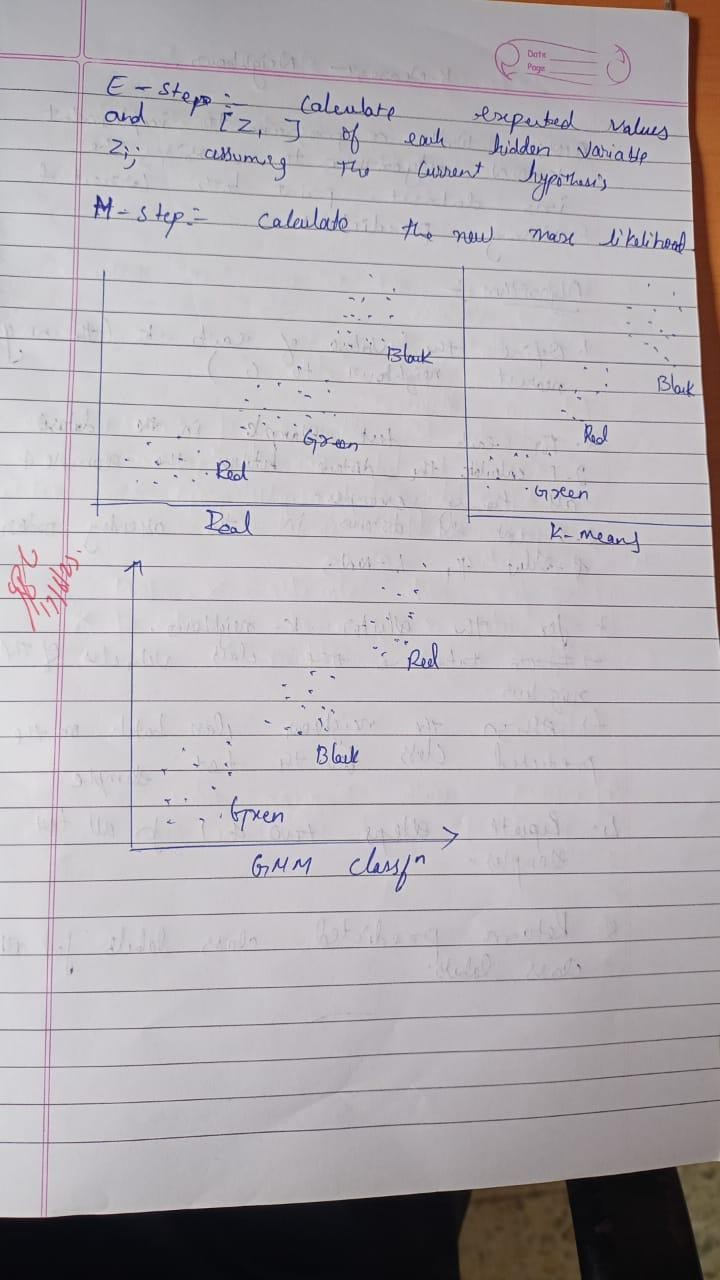 Date
Page
E-step:- Calculate expected values
and [Z, ] of each hidden variable
Zij assuming the current hypothesis
M-step:- Calculate the new max likelihood
Black
Black
Green
Red
Red
Green
Real
K-Means
Red
Black
Green
GMM classfn